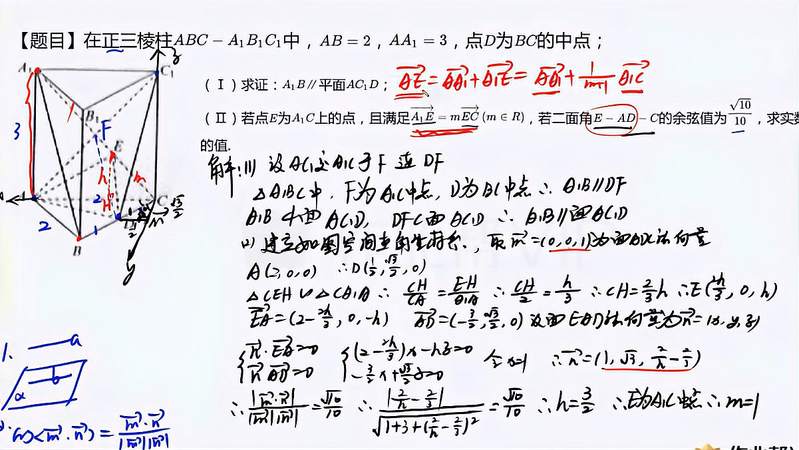 【题目】在正三棱柱ABC－A₁B₁C₁中，AB＝2，AA₁＝3，点D为BC的中点；
（Ⅰ）求证：A₁B∥平面AC₁D； AE＝AA₁+A₁E＝AA₁+1/(m+1) A₁C
（Ⅱ）若点E为A₁C上的点，且满足A₁E＝mEC (m∈R)，若二面角E－AD－C的余弦值为√10/10，求实数
的值.
解:(1) 设AC₁交A₁C于F 连DF
△A₁BC中，F为A₁C中点，D为BC中点 ∴A₁B∥DF
A₁B⊄面AC₁D，DF⊂面AC₁D ∴A₁B∥面AC₁D
(2) 建立如图空间直角坐标系，取m＝(0,0,1)为面ADC法向量
A(2,0,0) ∴D(1/2,√3/2,0)
△CEH∽△CA₁A ∴CH/CA＝EH/A₁A ∴CH/2＝h/3 ∴CH＝2/3h ∴E(2h/3,0,h)
EA＝(2-2h/3,0,-h) AD＝(-3/2,√3/2,0) 设面EAD法向量为n＝(x,y,z)
{n·EA＝0 n·AD＝0 {(2-2h/3)x-hz＝0 -3/2x+√3/2y＝0 令x=1 ∴n＝(1,√3,2/h-2/3)
∴|m·n|/|m||n|＝√10/10 ∴|2/h-2/3|/√(1+3+(2/h-2/3)²)＝√10/10 ∴h＝3/2 ∴E为A₁C中点 ∴m＝1
A₁
C₁
z
B₁
1
3
F
E
m
h
H
2
C
√3/2
A
2
1
D
M
B
y
1.
a
b
α
cos<m·n>＝m·n/|m||n|